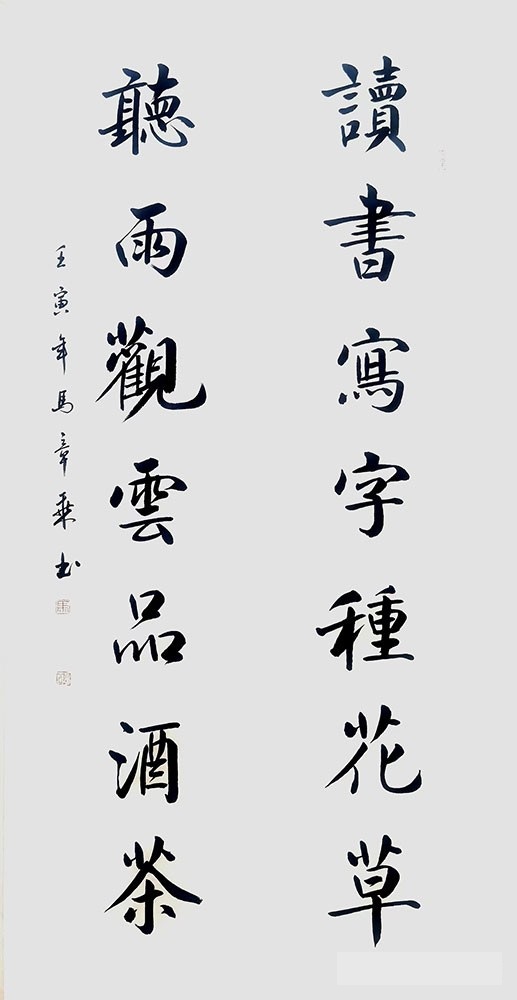 讀書寫字種花草
聽雨觀雲品酒茶
壬寅年馬章乘书